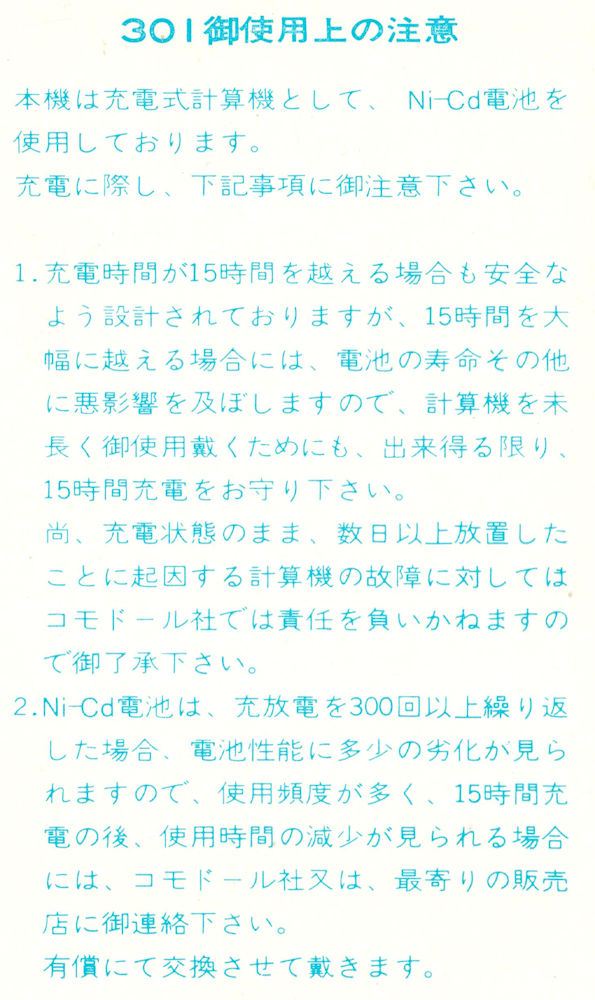 301御使用上の注意
本機は充電式計算機として、 Ni-Cd電池を
使用しております。
充電に際し、下記事項に御注意下さい。
1.充電時間が15時間を越える場合も安全な
よう設計されておりますが、15時間を大
幅に越える場合には、電池の寿命その他
に悪影響を及ぼしますので、計算機を末
長く御使用戴くためにも、出来得る限り、
15時間充電をお守り下さい。
尚、充電状態のまま、数日以上放置した
ことに起因する計算機の故障に対しては
コモドール社では責任を負いかねますの
で御了承下さい。
2.Ni-Cd電池は、充放電を300回以上繰り返
した場合、電池性能に多少の劣化が見ら
れますので、使用頻度が多く、15時間充
電の後、使用時間の減少が見られる場合
には、コモドール社又は、最寄りの販売
店に御連絡下さい。
有償にて交換させて戴きます。